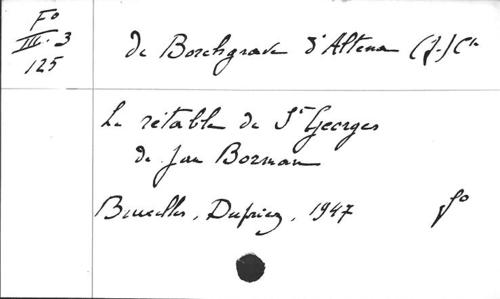 Fo
III. 3
125
de Borchgrave d'Altena (J.) Cte
Le rétable de St Georges
de Jan Borman
Bruxelles, Dupriez, 1947 fo